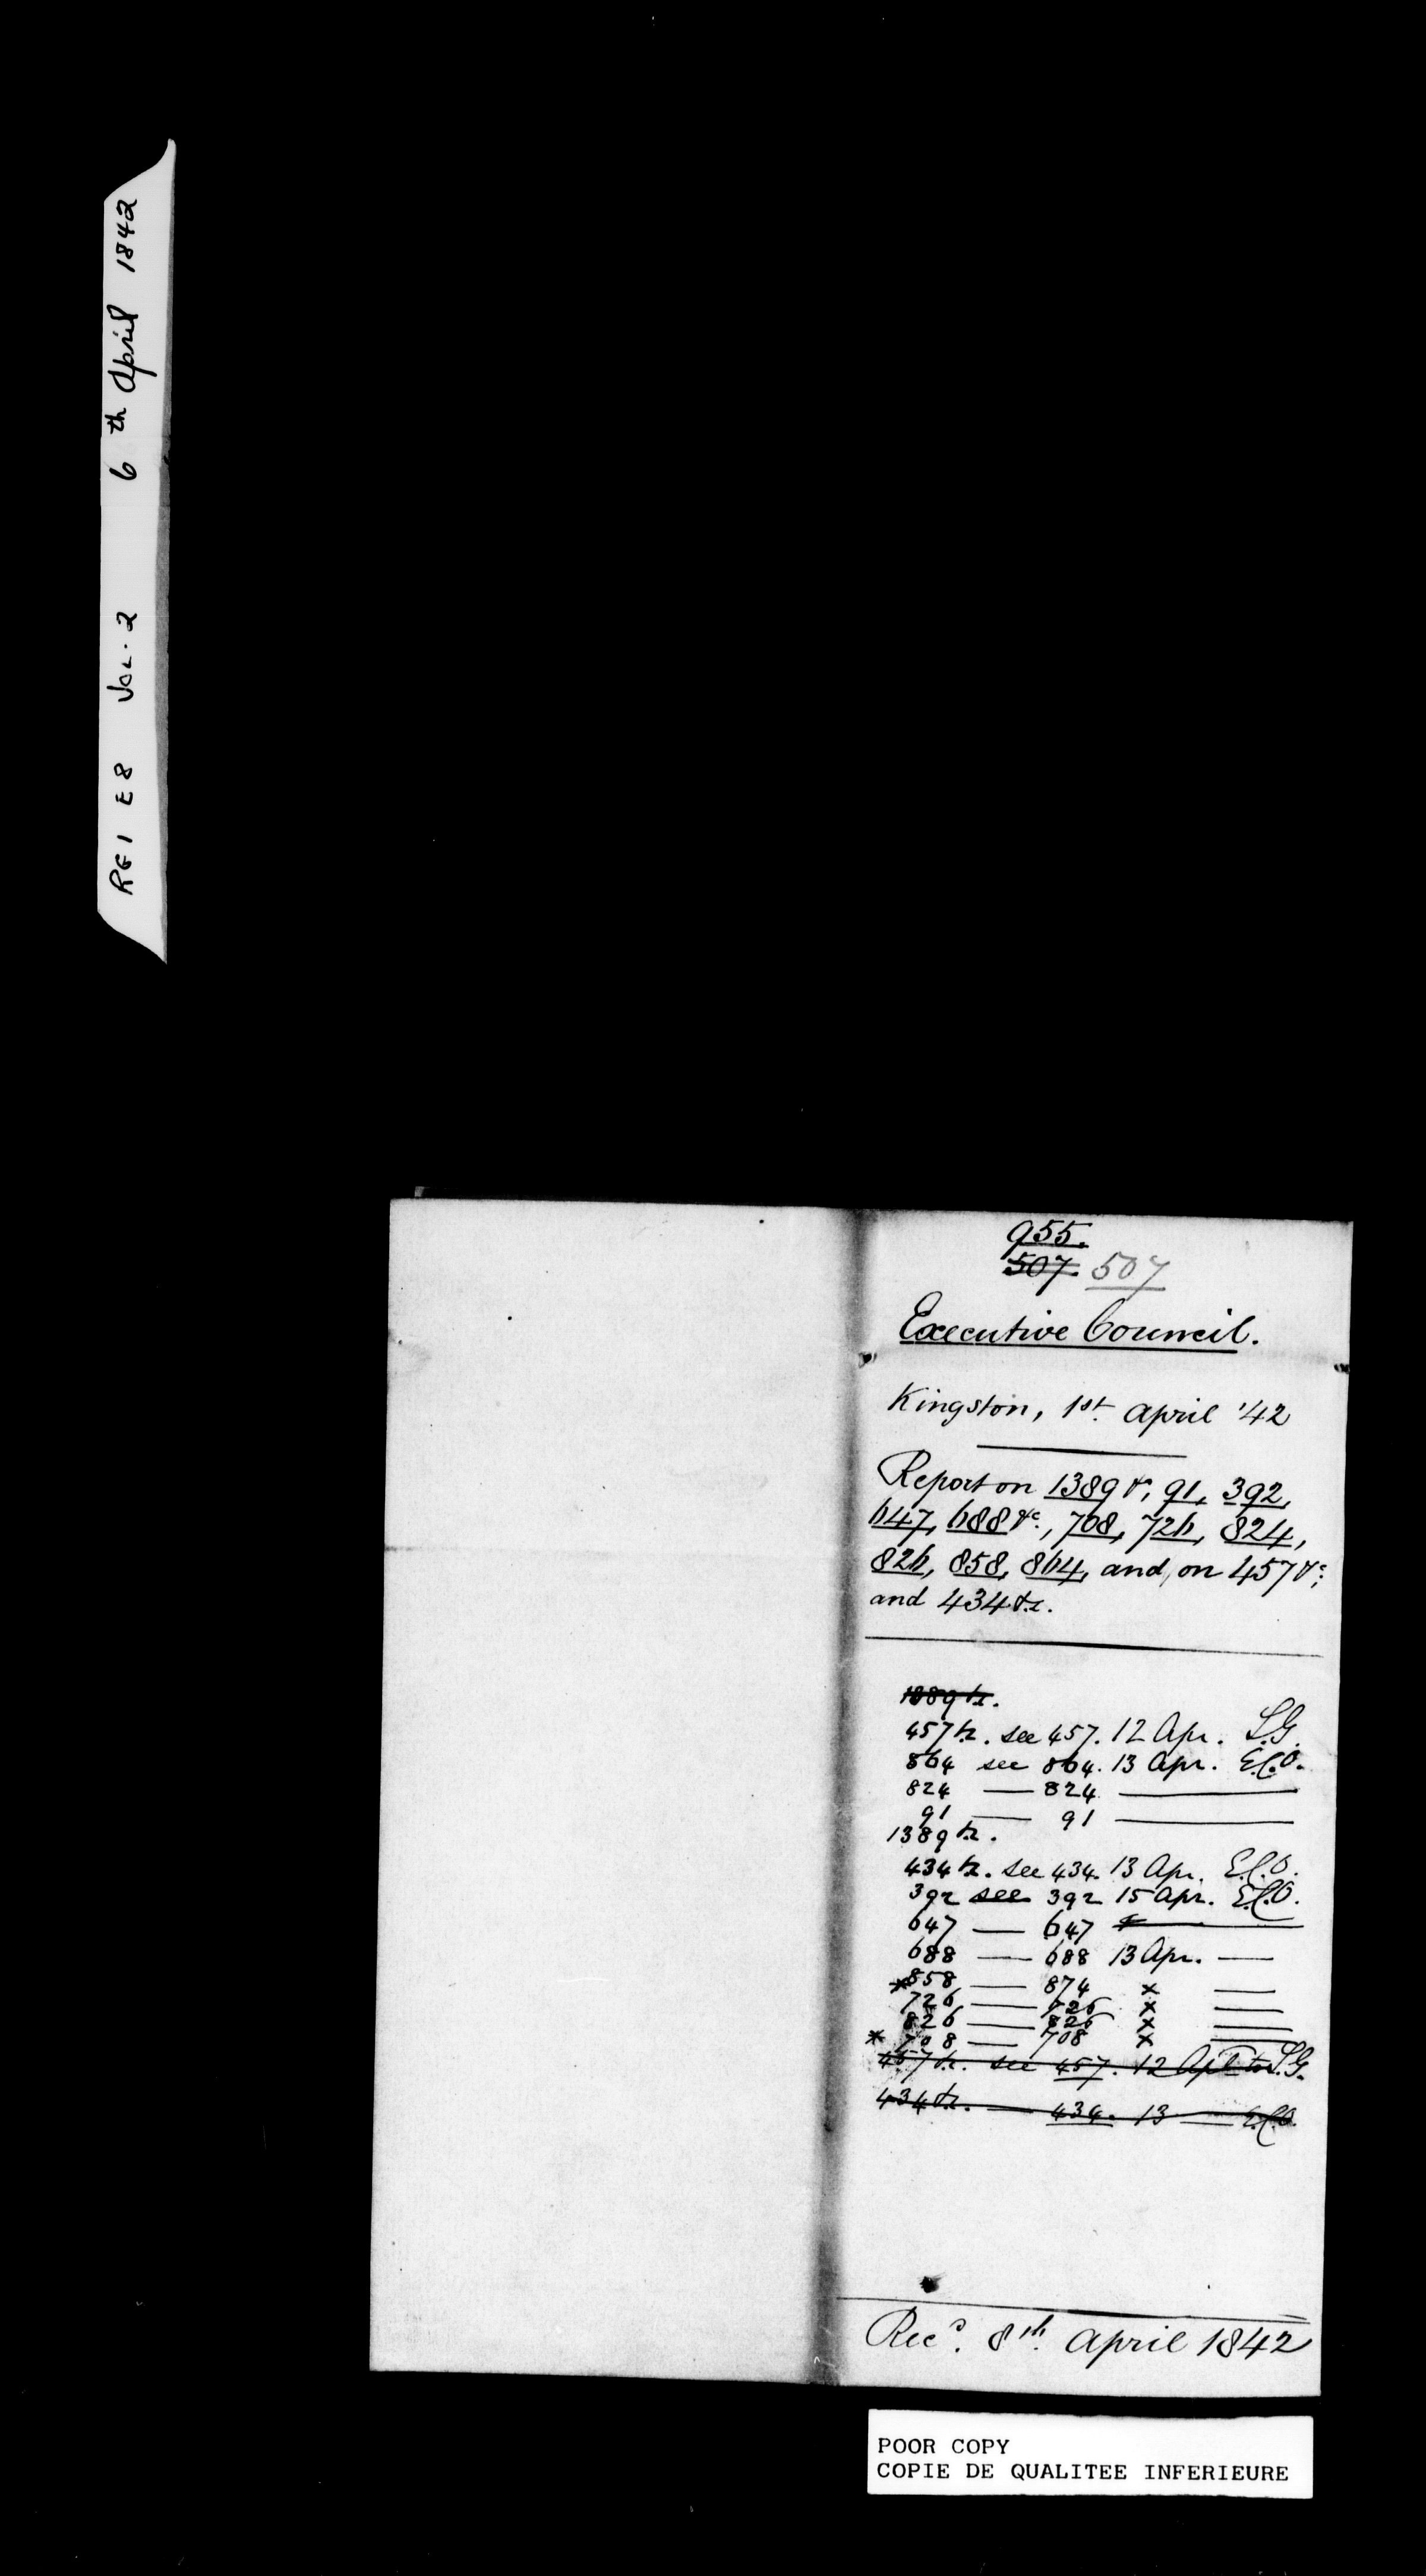 RG1 E8 VOL. 2 6th April 1842
955.
507. 507
Executive Council.
Kingston, 1st. April '42
Report on 1389 &c, 91, 392,
647, 688 &c., 708, 726, 824,
826, 858, 864, and, on 457 &c;
and 434 &c.
1389 &c.
457 &c. see 457. 12 Apr. S.G.
864 see 864. 13 Apr. E.C.O.
824 — 824 —
91 — 91 —
1389 &c.
434 &c. see 434. 13 Apr. E.C.O.
392 see 392 15 Apr. E.C.O.
647 — 647 —
688 — 688 13 Apr. —
*858 — 874 x —
726 — 726 x —
826 — 826 x —
* 708 — 708 x —
457 &c. see 457. 12 Apl to S.G.
434 &c. — 434. 13 — E.C.O.
Recd. 8th. April 1842
POOR COPY
COPIE DE QUALITEE INFERIEURE